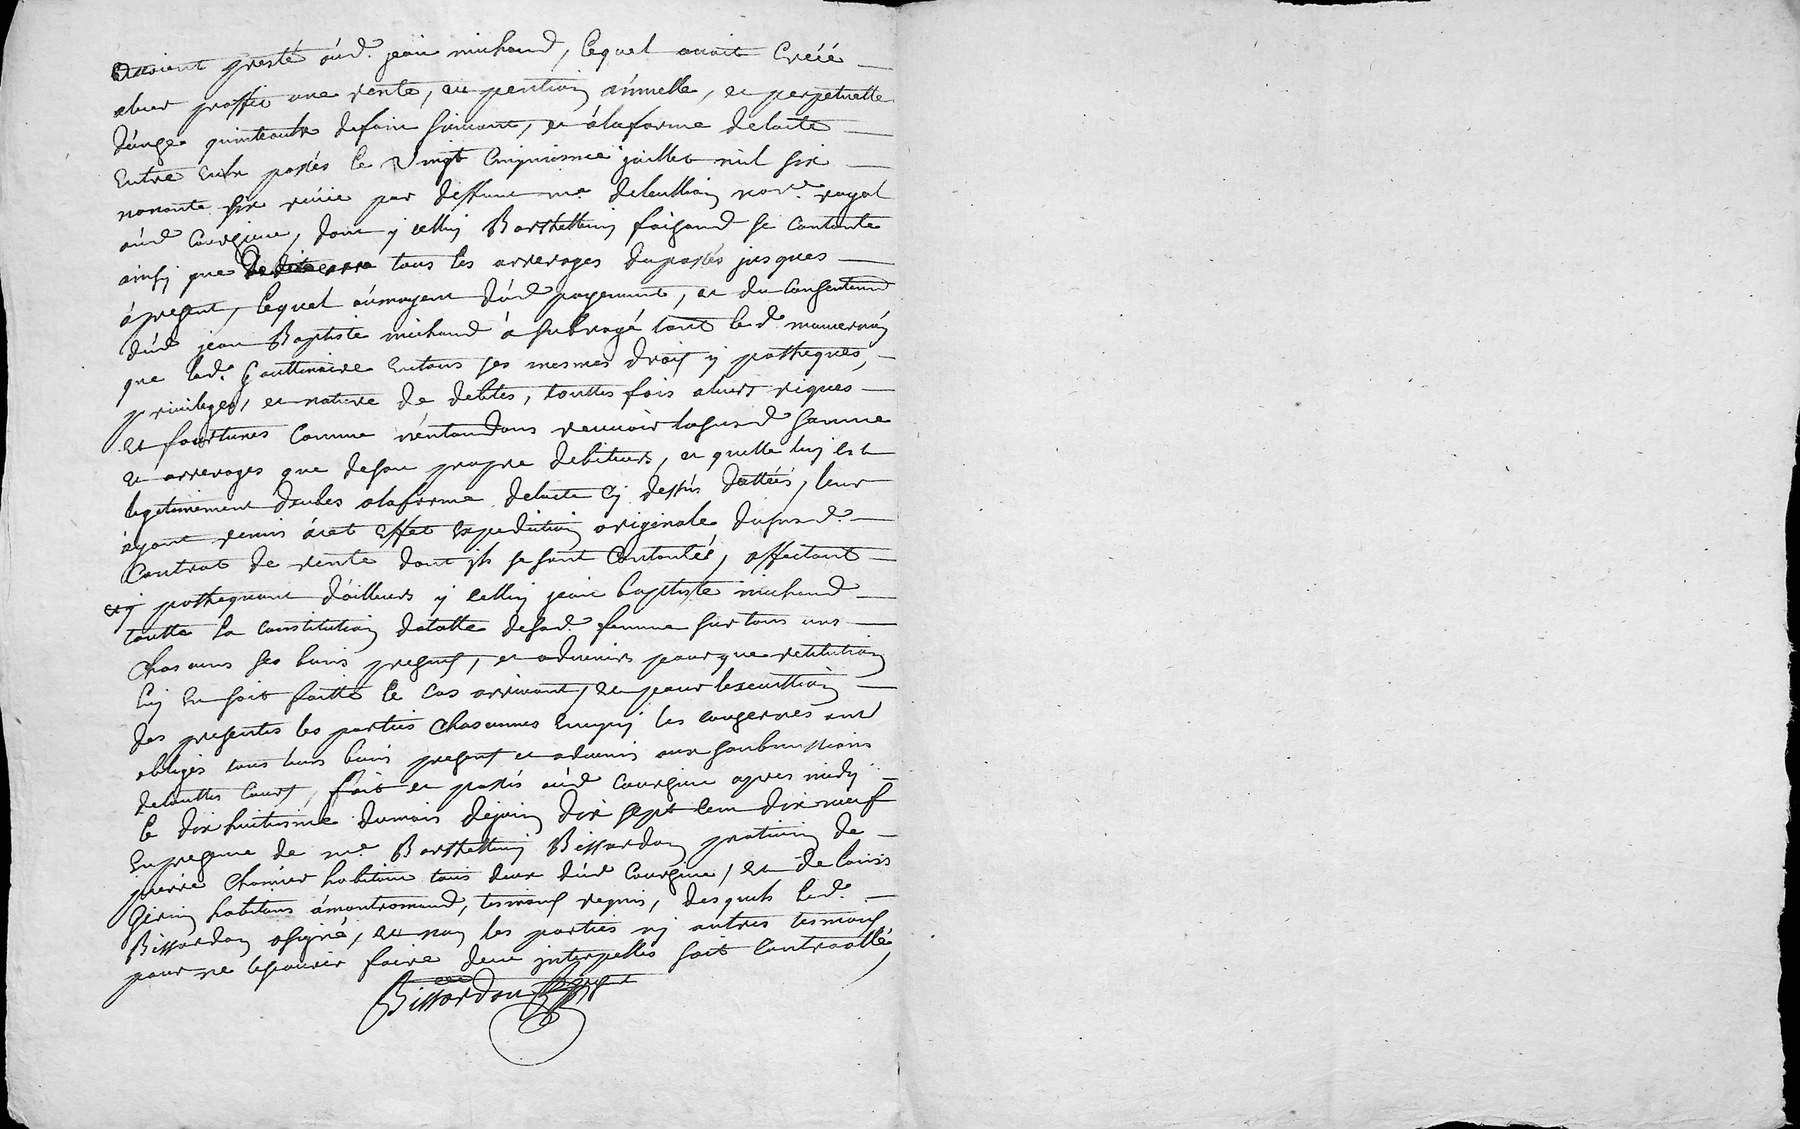 avoient presté aud. jean michaud, lequel avoit créée
aleur proffit une rente, ou pention annuelle, et perpetuelle
entre eux passés le vingt cinquiesme juillet mil six
nonante six receu par deffunt me. deleullion nore. royal
aud Courgieu, dont ycelluy Barthellemy se contante
ainsy que tous les arrerages dupassés jusques
apresent, lequel aumoyent dud payement, et du consentement
dud jean Baptiste michaud a subrogé tant led.
que lad. en tous ses mesmes drois ypotheques,
privileges, et nature de debites, touttes fois aleurs riques
et fourtunes comme n'entandans recevoir lasusd somme
et arrerages que deson propre debiteurs, et quelle luy est
legitimement deubes alaforme delacte cy dessus dattées, leur
ayant remis acet effet expedition originale dususd.
contrat de rente dont ils se sont contantés, affectant
et ypothequant d'ailleurs ycelluy jean baptiste michaud
toutte la constitution dotalle desad. femme sur tous uns
chascuns ses biens presens, et advenirs pour que restitution
luy en soit faitte le cas arrivant, et pour lexecuttion
des presentes les parties chascunes en ce qui les concernes ont
obligés tous leurs biens presens et advenir aux soubmissions
detouttes cours, fait et passés aud Courgieu apres midy
le dix huitiesme dumois dejuin dix sept cent dix neuf
en presence de me. Barthellemy Bissardon praticien de
pierre habitans tous deux dud Courgieu, et de louis
habitans amontromand, tesmoins requis, desquels led.
Bissardon asigné, et non les parties ny autres tesmoins
pour ne lesçavoir faire deue interpelles soit controollé
Bissardon